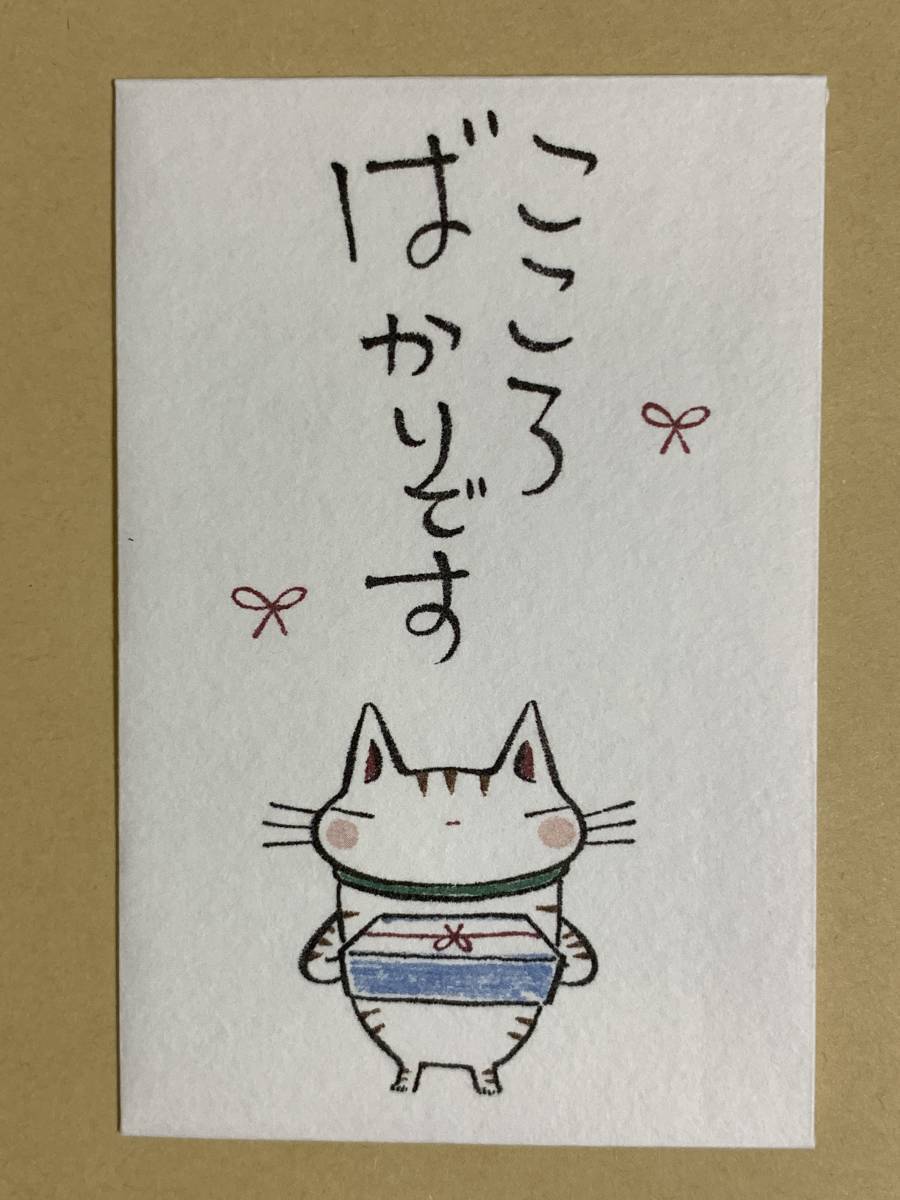 こころ
ばかりです